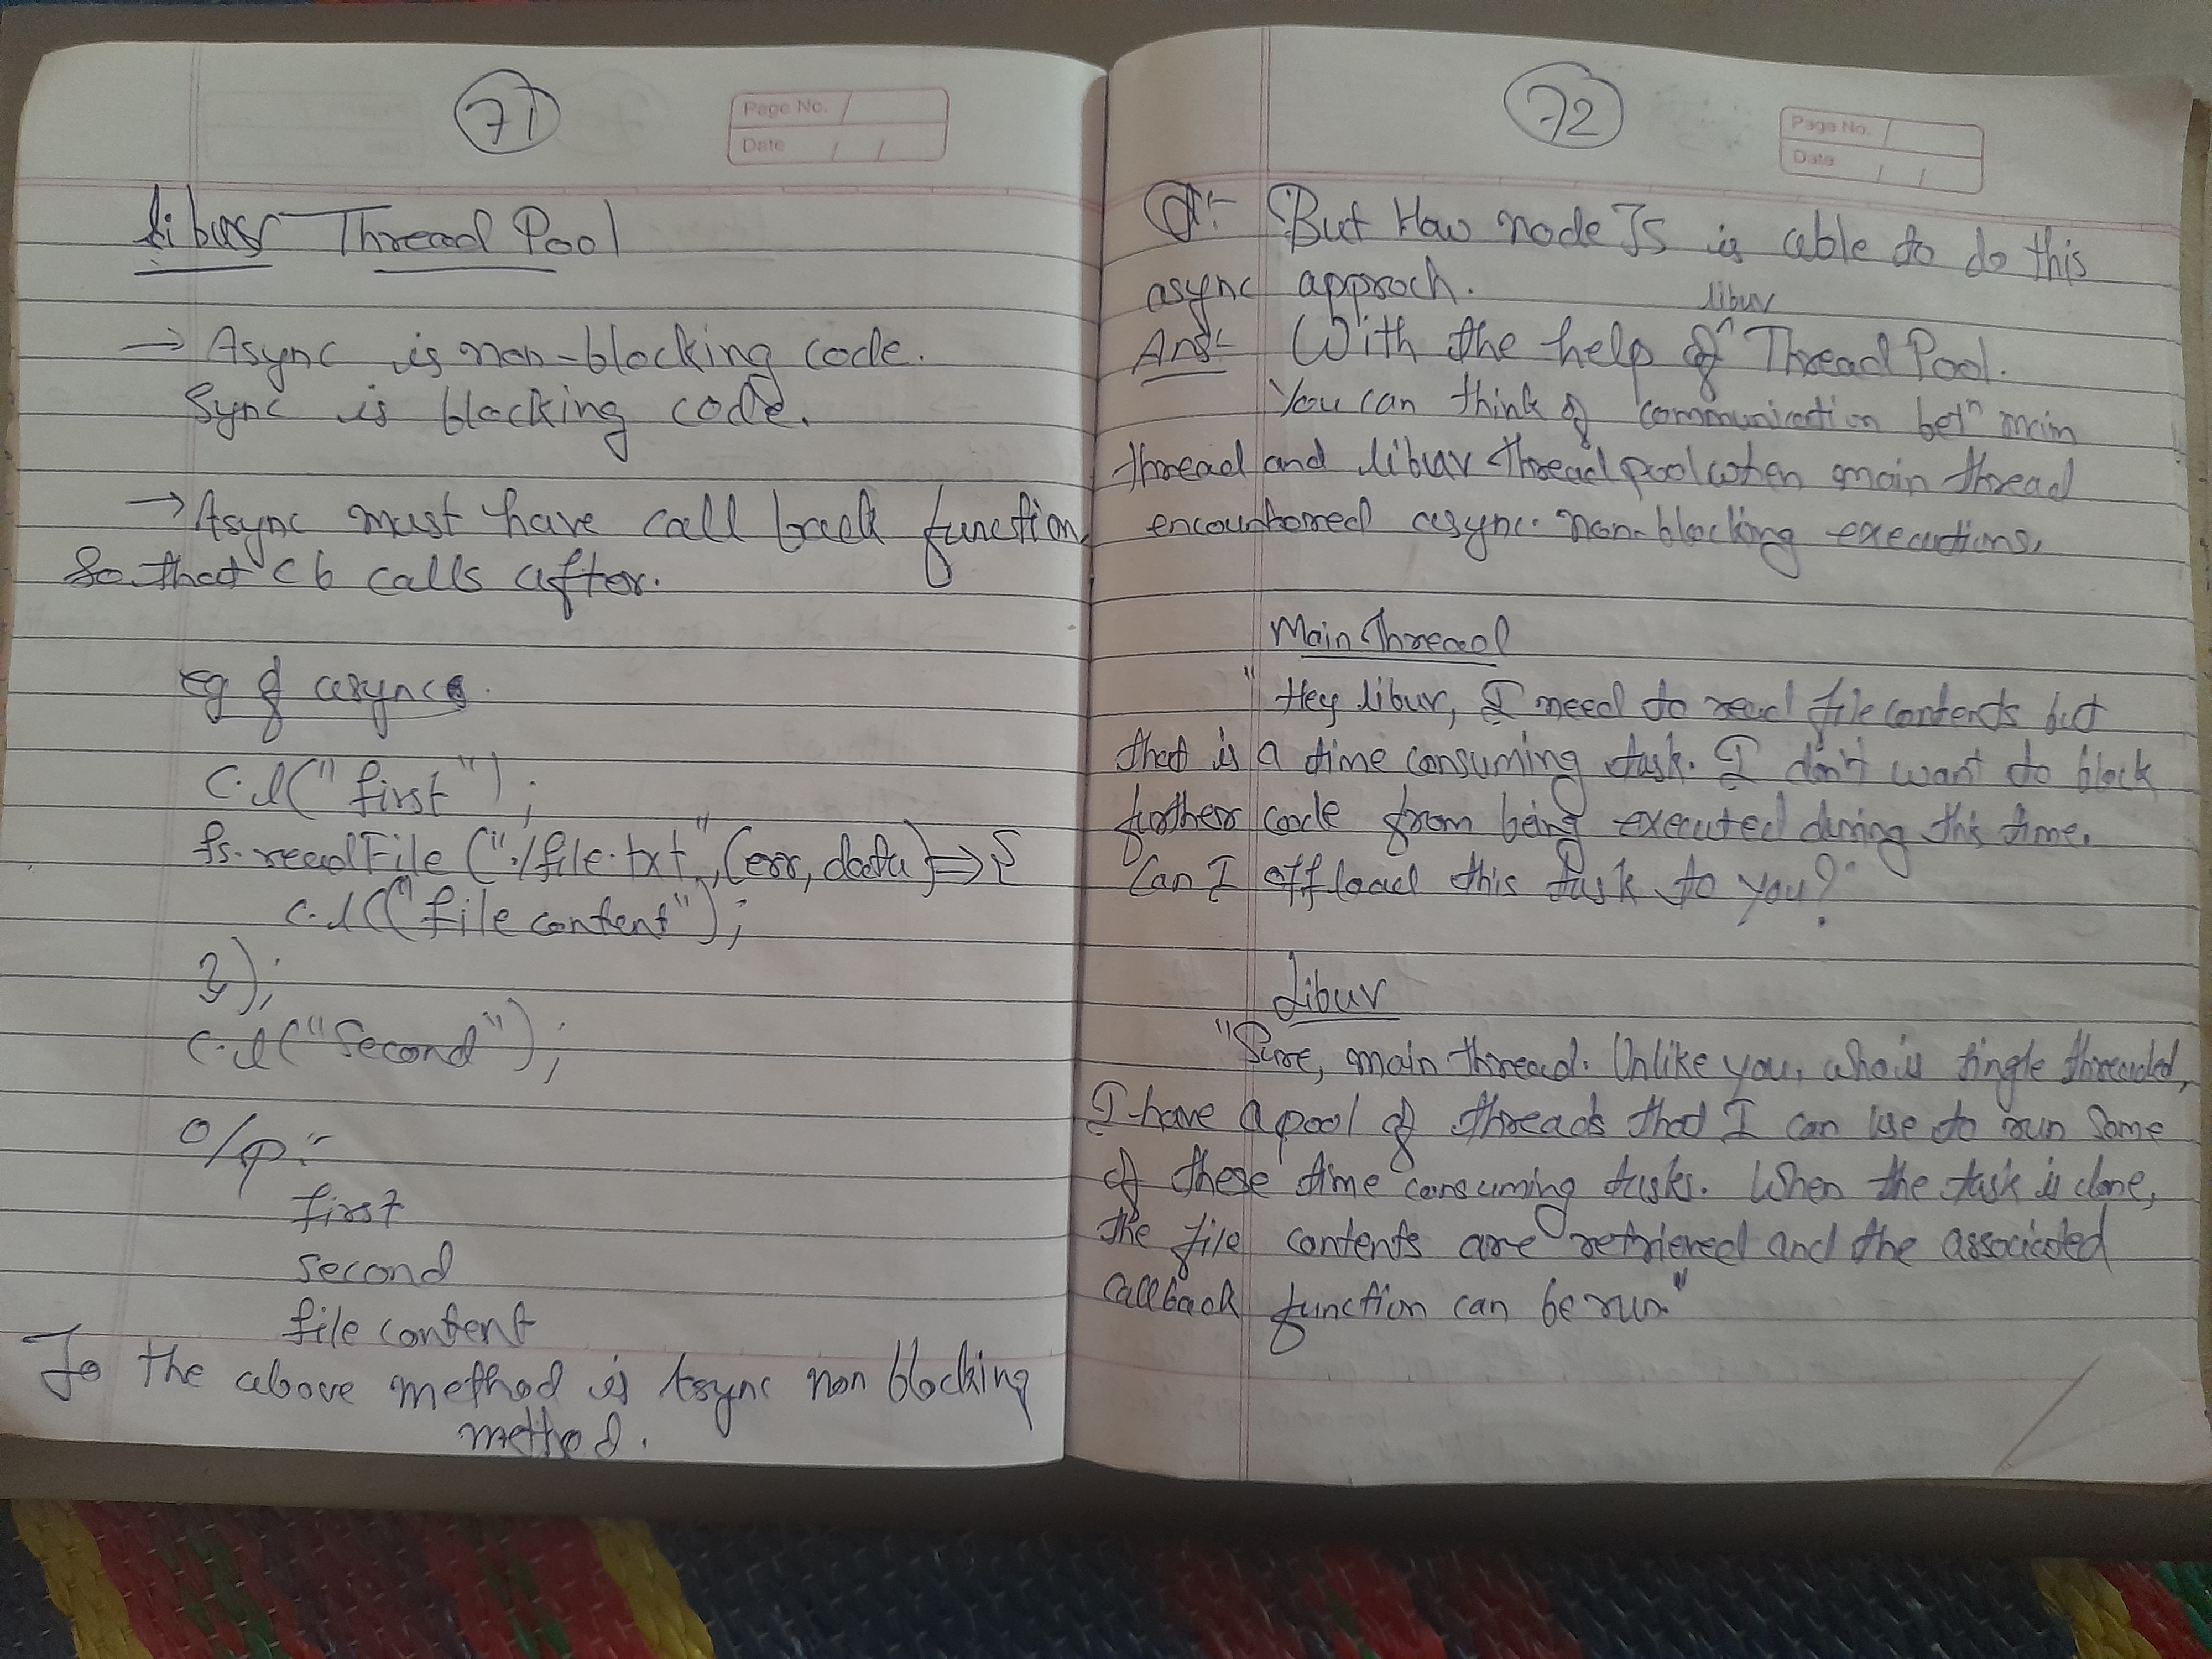 71
Page No.
Date / /
libuv Thread Pool
→ Async is non-blocking code.
Sync is blocking code.
→ Async must have call back function,
So that cb calls after.
eg of async
c.l("first");
fs.readFile("./file.txt", (err, data) => {
c.l("file content");
});
c.l("Second");
o/p:-
first
second
file content
So the above method is Async non blocking
method.
72
Page No.
Date / /
Q:- But How node JS is able to do this
async approch.
libuv
Ans:- With the help of ^ Thread Pool.
You can think of communication betn main
thread and libuv thread pool when main thread
encounterred async non-blocking executions.
Main Thread
"Hey libuv, I need to read file contents but
that is a time consuming task. I don't want to block
further code from being executed during this time.
Can I offload this task to you?"
Libuv
"Sure, main thread. Unlike you, who is single threaded,
I have a pool of threads that I can use to run some
of these time consuming tasks. When the task is done,
the file contents are retrieved and the associated
callback function can be run."